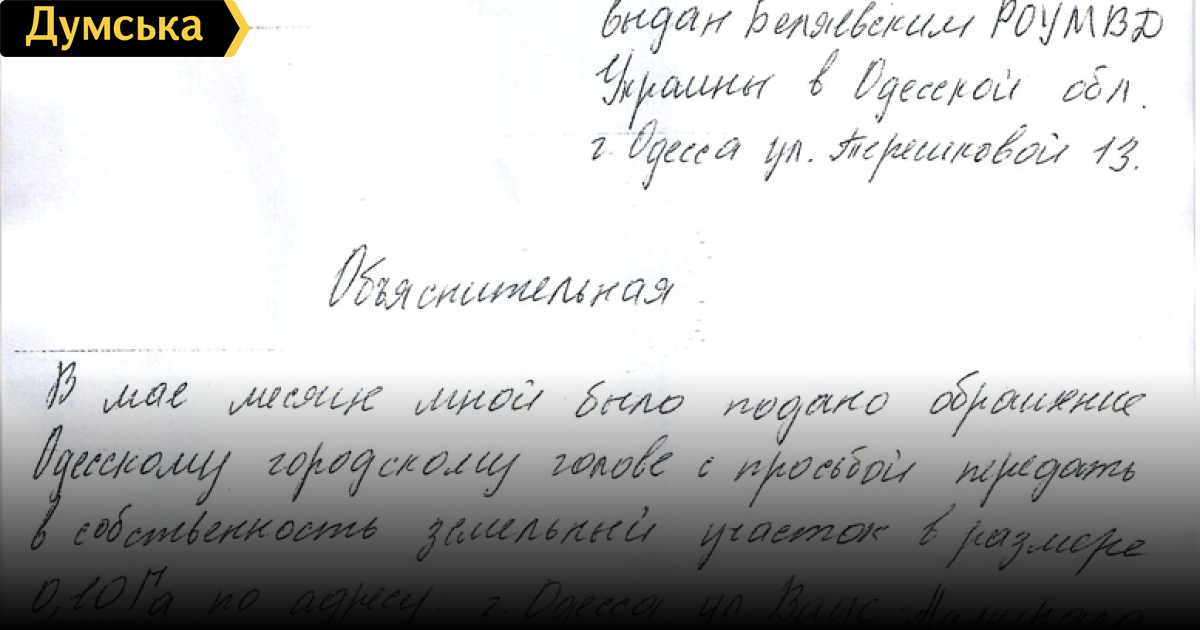 Думська
выдан Беляевским РОУМВД
Украины в Одесской обл.
г. Одесса ул. Терешковой 13.
Объяснительная
В мае месяце мной было подано обращение
Одесскому городскому голове с просьбой передать
в собственность земельный участок в размере
0,10 Га по адресу: г. Одесса ул. Вице-Адмирала